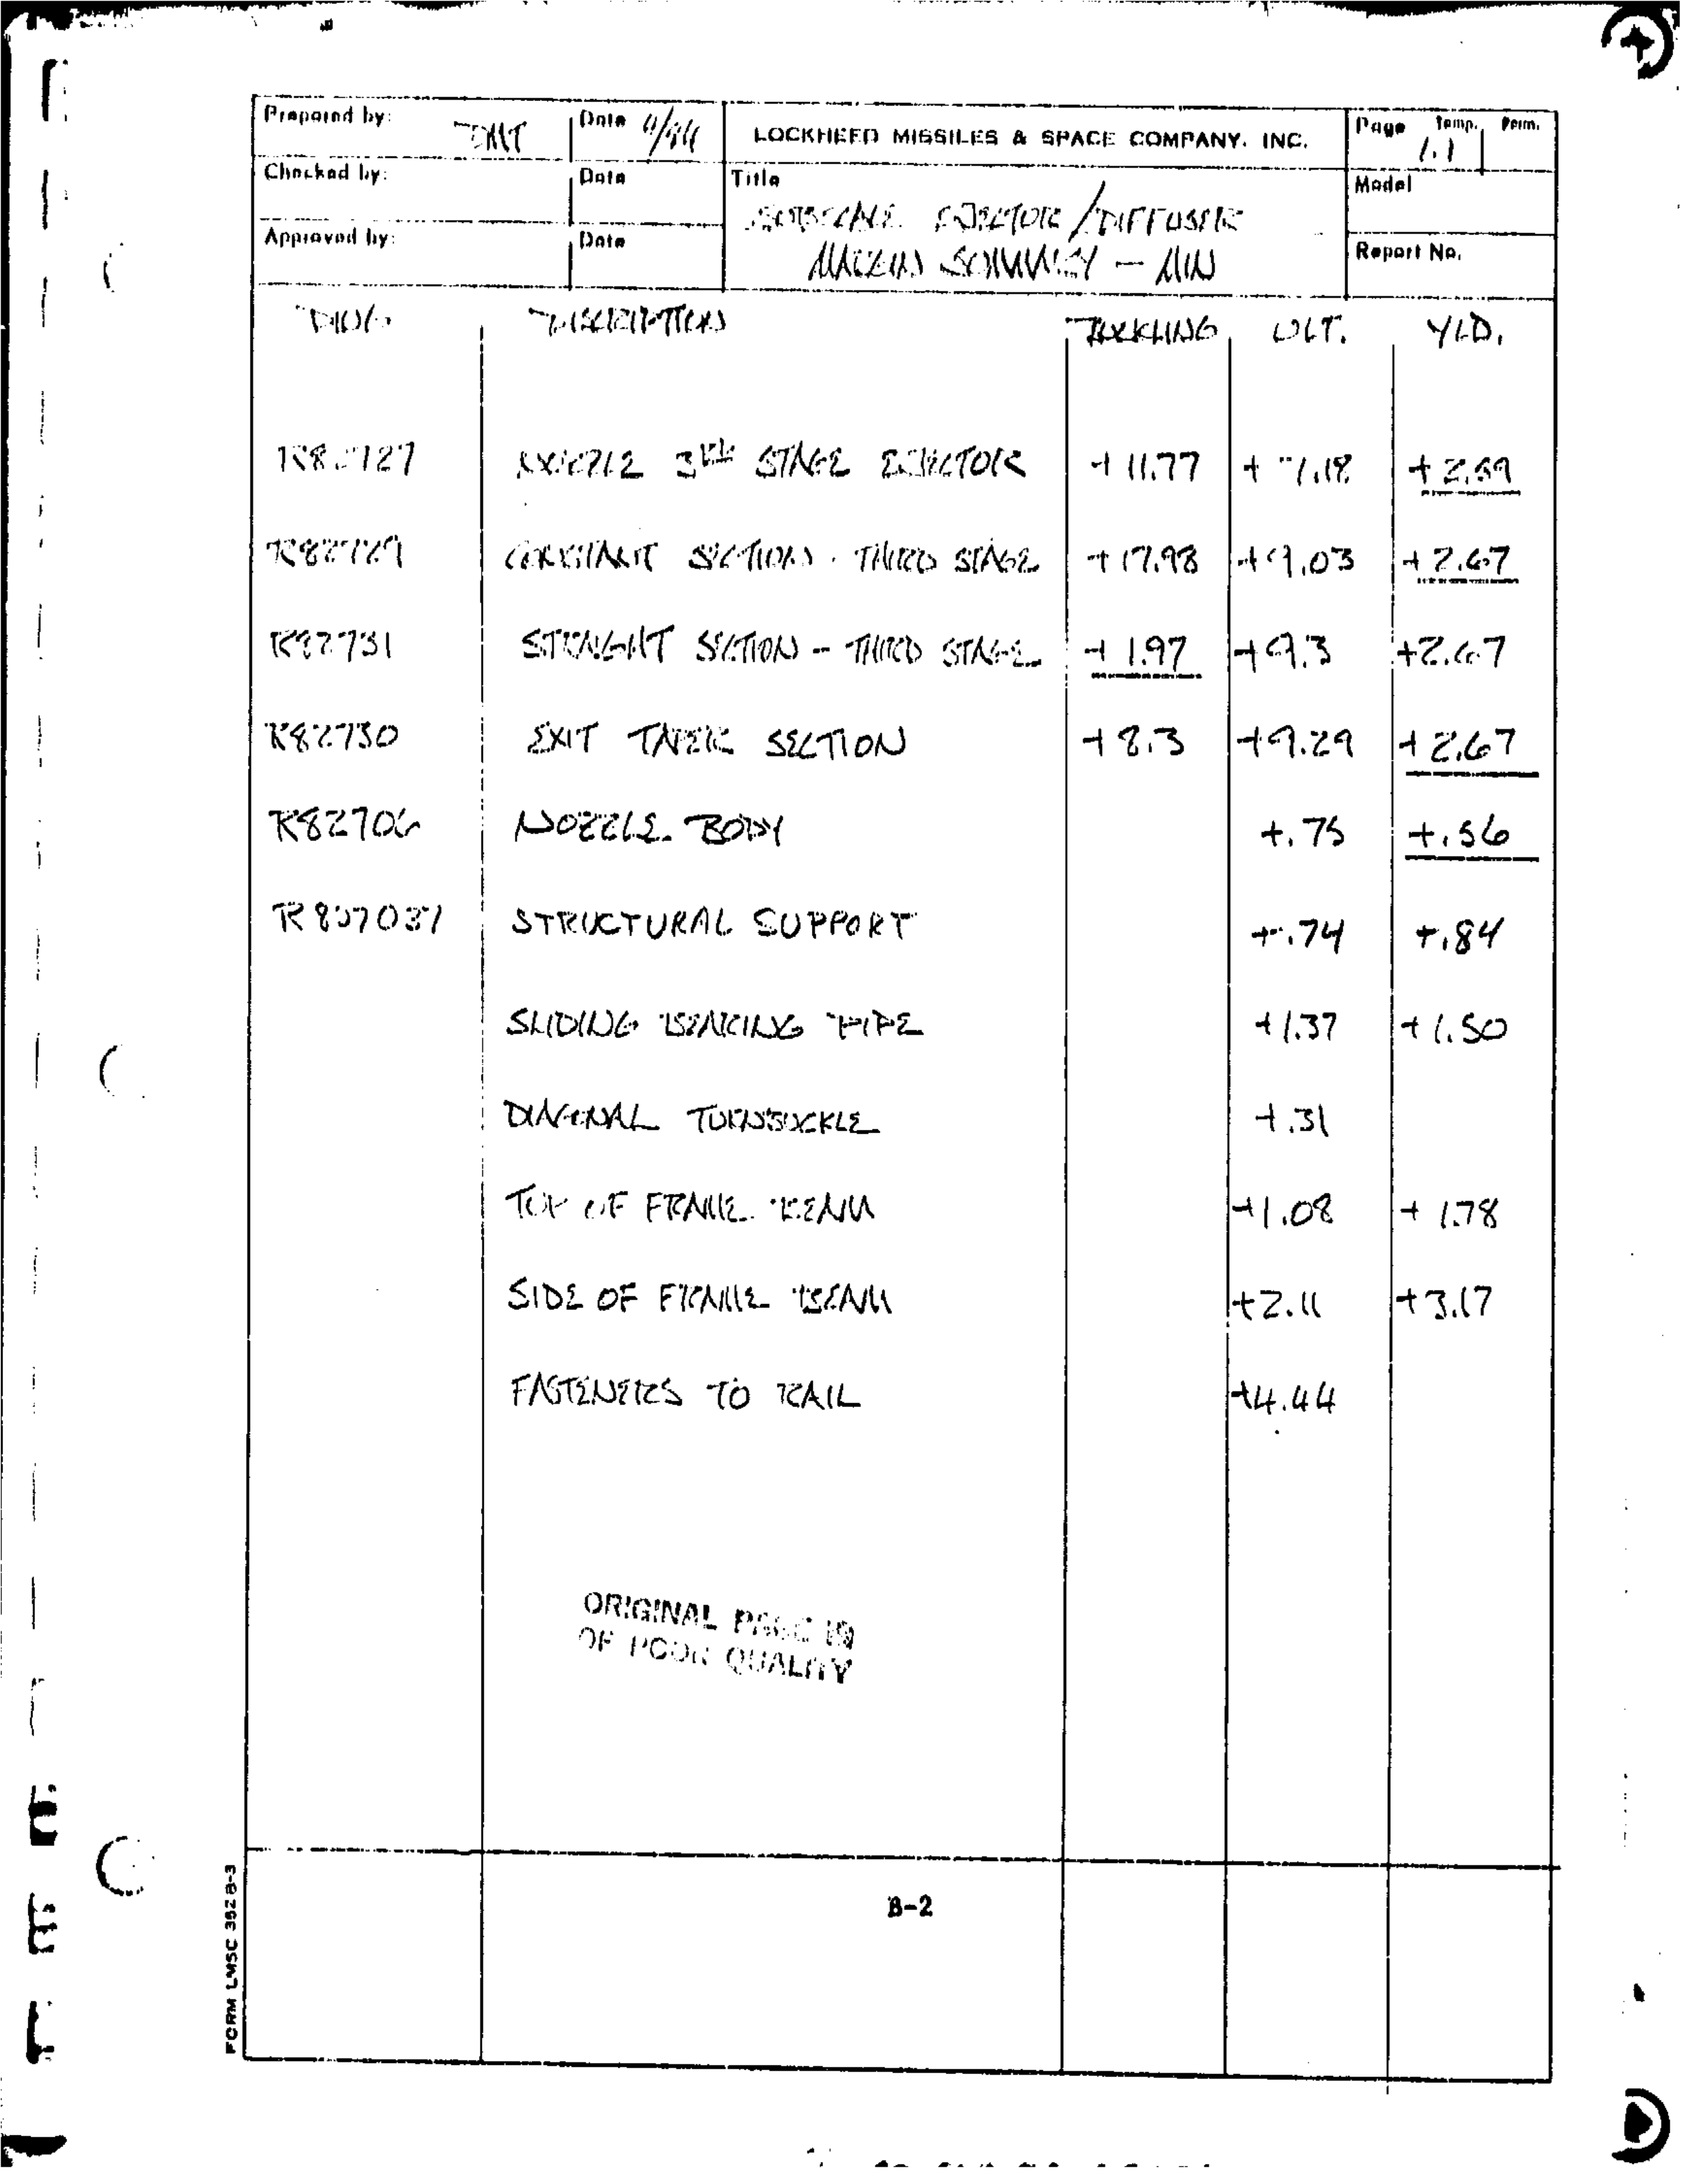 Prepared by: Date LOCKHEED MISSILES & SPACE COMPANY. INC. Page Temp. Perm.
1.1
Checked by: Date Title Model
SUBSCALE EJECTOR / DIFFUSER
Approved by: Date MARGIN SUMMARY - MIN Report No.
DWG DESCRIPTION BUCKLING ULT. YLD.
NOZZLE 3RD STAGE EJECTOR + 11.77 + 7.18
R82729 CONSTANT SECTION - THIRD STAGE + 17.98 + 9.03 + 2.67
R82731 STRAIGHT SECTION - THIRD STAGE + 1.97 + 9.3 + 2.67
R82730 EXIT TAPER SECTION + 8.3 + 9.29 + 2.67
R82706 NOZZLE BODY +.75 +.56
STRUCTURAL SUPPORT +.74 +.84
SLIDING BEARING PIPE +1.37 +1.50
DIAGONAL TURNBUCKLE +.31
TOP OF FRAME BEAM +1.08 + 1.78
SIDE OF FRAME BEAM +2.11 +3.17
FASTENERS TO RAIL +4.44
ORIGINAL PAGE IS
OF POOR QUALITY
B-2
FORM LMSC 352 B-3